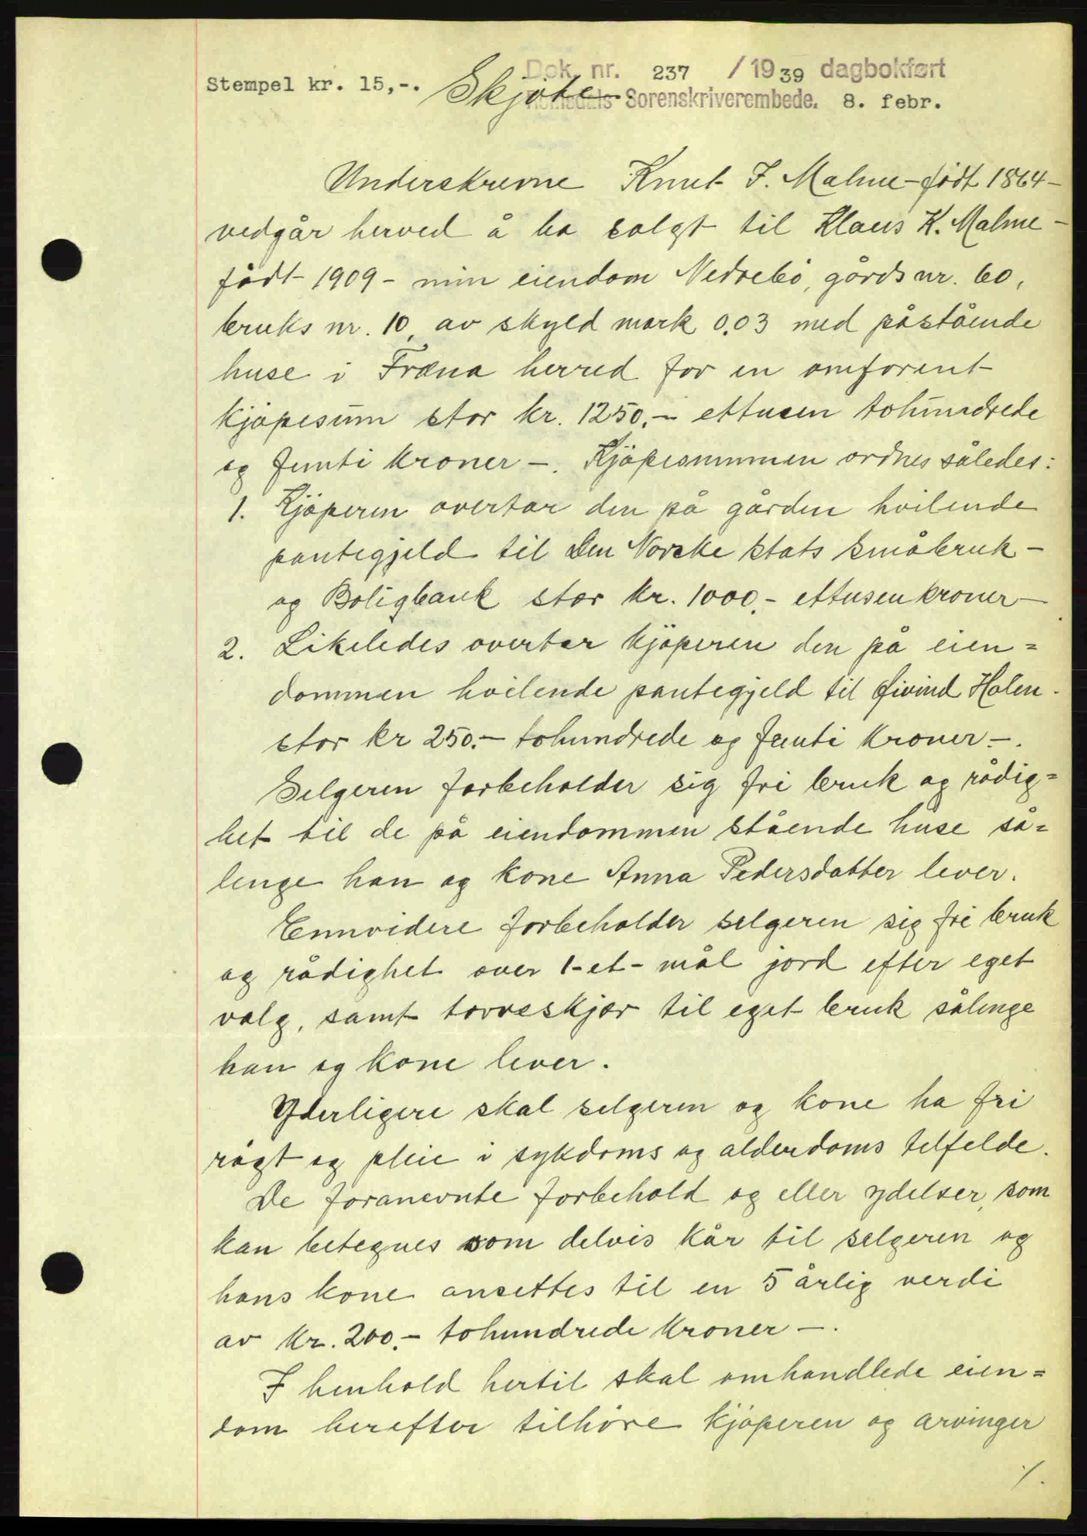 Dok. nr. 237 / 1939 dagbokført
Stempel kr. 15,-. Skjøte Romsdals Sorenskriverembede. 8. febr.
Underskrevne Knut I. Malme – født 1864 –
vedgår herved å ha solgt til Klaus K. Malme –
født 1909 – min eiendom Nedrebö, gårds nr. 60,
bruks nr. 10, av skyld mark 0,03 med påstående
huse i Fræna herred for en omforent
kjöpesum stor kr. 1250,- ettusen tohundrede
og femti kroner –. Kjöpesummen ordnes således:
1. Kjöperen overtar den på gården hvilende
pantegjeld til Den Norske Stats Småbruk –
og Boligbank stor kr. 1000,- ettusen kroner –
2. Likeledes overtar kjöperen den på eien=
dommen hvilende pantegjeld til Øivind Holen.
stor kr 250,- tohundrede og femti kroner –.
Selgeren forbeholder sig fri bruk og rådig=
het til de på eiendommen stående huse så=
lenge han og kone Anna Pedersdatter lever.
Ennvidere forbeholder selgeren sig fri bruk
og rådighet over 1 – et – mål jord efter eget
valg, samt torveskjær til eget bruk sålenge
han og kone lever.
Yderligere skal selgeren og kone ha fri
rögt og pleie i sykdoms og alderdoms tilfelde.
De forannevnte forbehold og eller ydelser, som
kan betegnes som delvis kår til selgeren og
hans kone ansettes til en 5 årlig verdi
av kr. 200,- tohundrede kroner –.
I henhold hertil skal omhandlede eien=
dom herefter tilhöre kjöperen og arvinger
./.